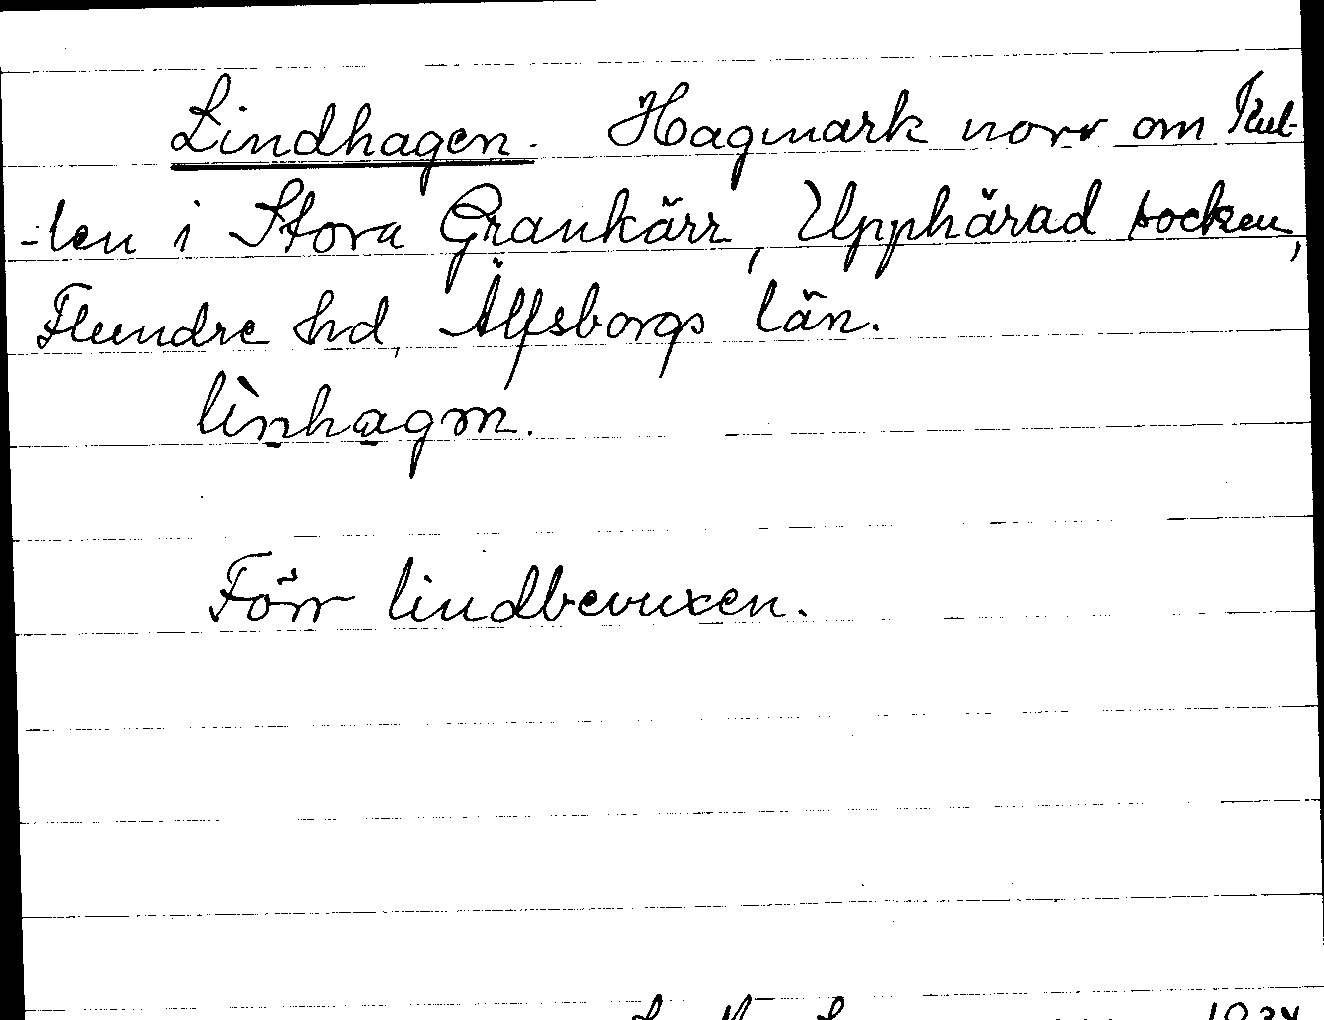 Lindhagen. Hagmark norr om Kul-
-len i Stora Grankärr, Upphärad socken,
Flundre hd, Älfsborgs län.
lìnhagɔn.
Förr lindbevuxen.
1934